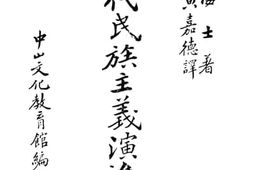 海士著
黃嘉德譯
代民族主義演進
中山文化教育館編